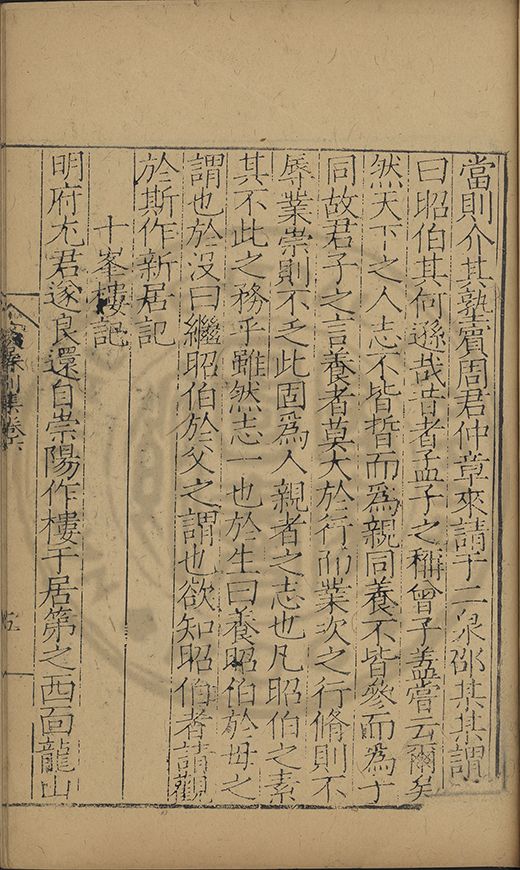 當則介其塾賓周君仲章來請于二泉邵某其謂
曰昭伯其何遜哉昔者孟子之稱曾子蓋嘗云爾矣
然天下之人志不皆晳而為親同養不皆參而為子
同故君子之言養者莫大於行而業次之行脩則不
辱業崇則不乏此固為人親者之志也凡昭伯之素
其不此之務乎雖然志一也於生曰養昭伯於母之
謂也於沒曰繼昭伯於父之謂也欲知昭伯者請觀
於斯作新居記
十峯樓記
明府尤君遂良還自崇陽作樓于居第之西面龍山